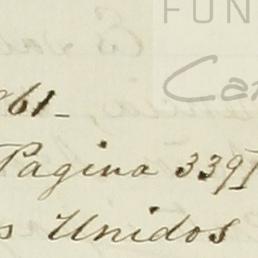 FUN
Car
861_
Pagina 339
s Unidos